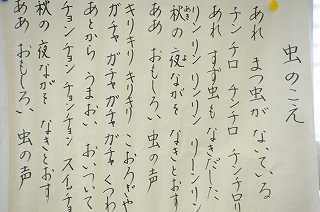 虫のこえ
あれ まつ虫が ないている
チンチロ チンチロ チンチロリ
あれ すず虫も なきだした
リンリン リンリン リーンリン
秋の夜ながを なきとおす
ああ おもしろい 虫の声
キリキリ キリキリ こおろぎや
ガチャガチャ ガチャガチャ くつわ
あとから うまおい おいついて
チョンチョン チョンチョン スイッチョ
秋の夜ながを なきとおす
ああ おもしろい 虫の声